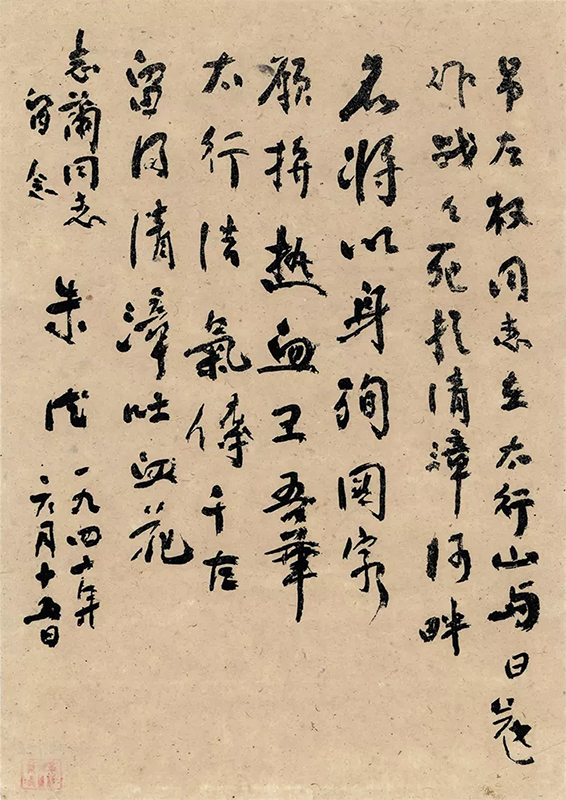 吊左权同志在太行山与日寇
作战々死於清漳河畔
名将以身殉國家
願拼熱血卫吾華
太行浩氣傳千古
留得清漳吐血花
志蘭同志
留念
朱德
一九四二年
六月十五日